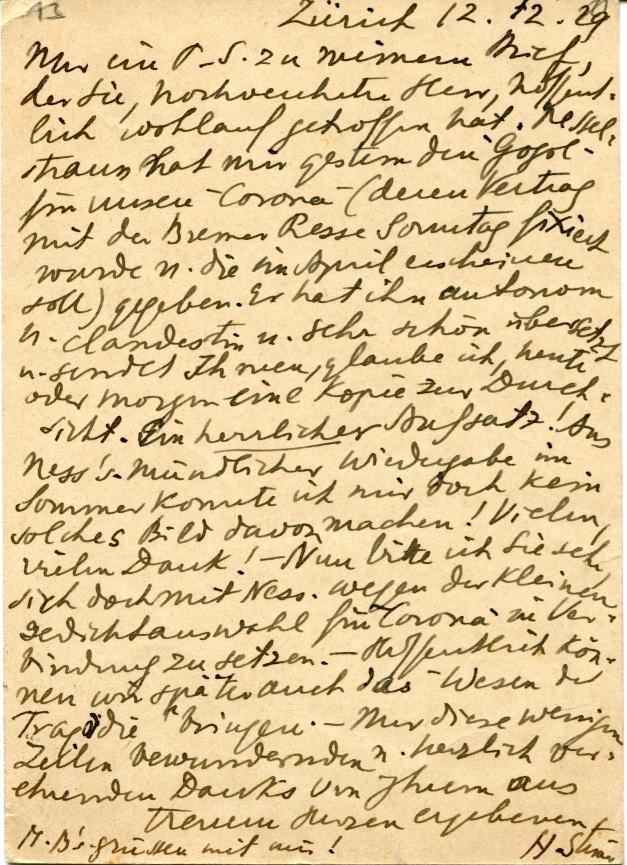 13
Zürich 12. 12. 29
Nur ein P-S. zu meinem Brief,
der Sie, hochverehrter Herr, hoffent-
lich wohlauf getroffen hat. Nessel-
straus hat mir gestern den Gogol-
für unsere "Corona" (deren Vertrag
mit der Bremer Presse Sonntag fixiert
wurde u. die im April erscheinen
soll) gegeben. Er hat ihn autonom
u. clandestin u. sehr schön übersetzt
u. sendet Ihnen, glaube ich, heute
oder morgen eine Kopie zur Durch-
sicht. Ein herrlicher Aufsatz! Aus
Ness's. mündlicher Wiedergabe im
Sommer konnte ich mir doch kein
solches Bild davon machen! Vielen,
vielen Dank! – Nun bitte ich Sie sehr
sich doch mit Ness. wegen der kleinen
Gedichtauswahl für "Corona" in Ver-
bindung zu setzen. – Hoffentlich kön-
nen wir später auch das "Wesen der
Tragödie" bringen. – Nur diese wenigen
Zeilen bewundernden u. herzlich ver-
ehrenden Danks von Ihrem aus
treuem Herzen ergebenen
M. B's. grüssen mit mir! H. Steiner